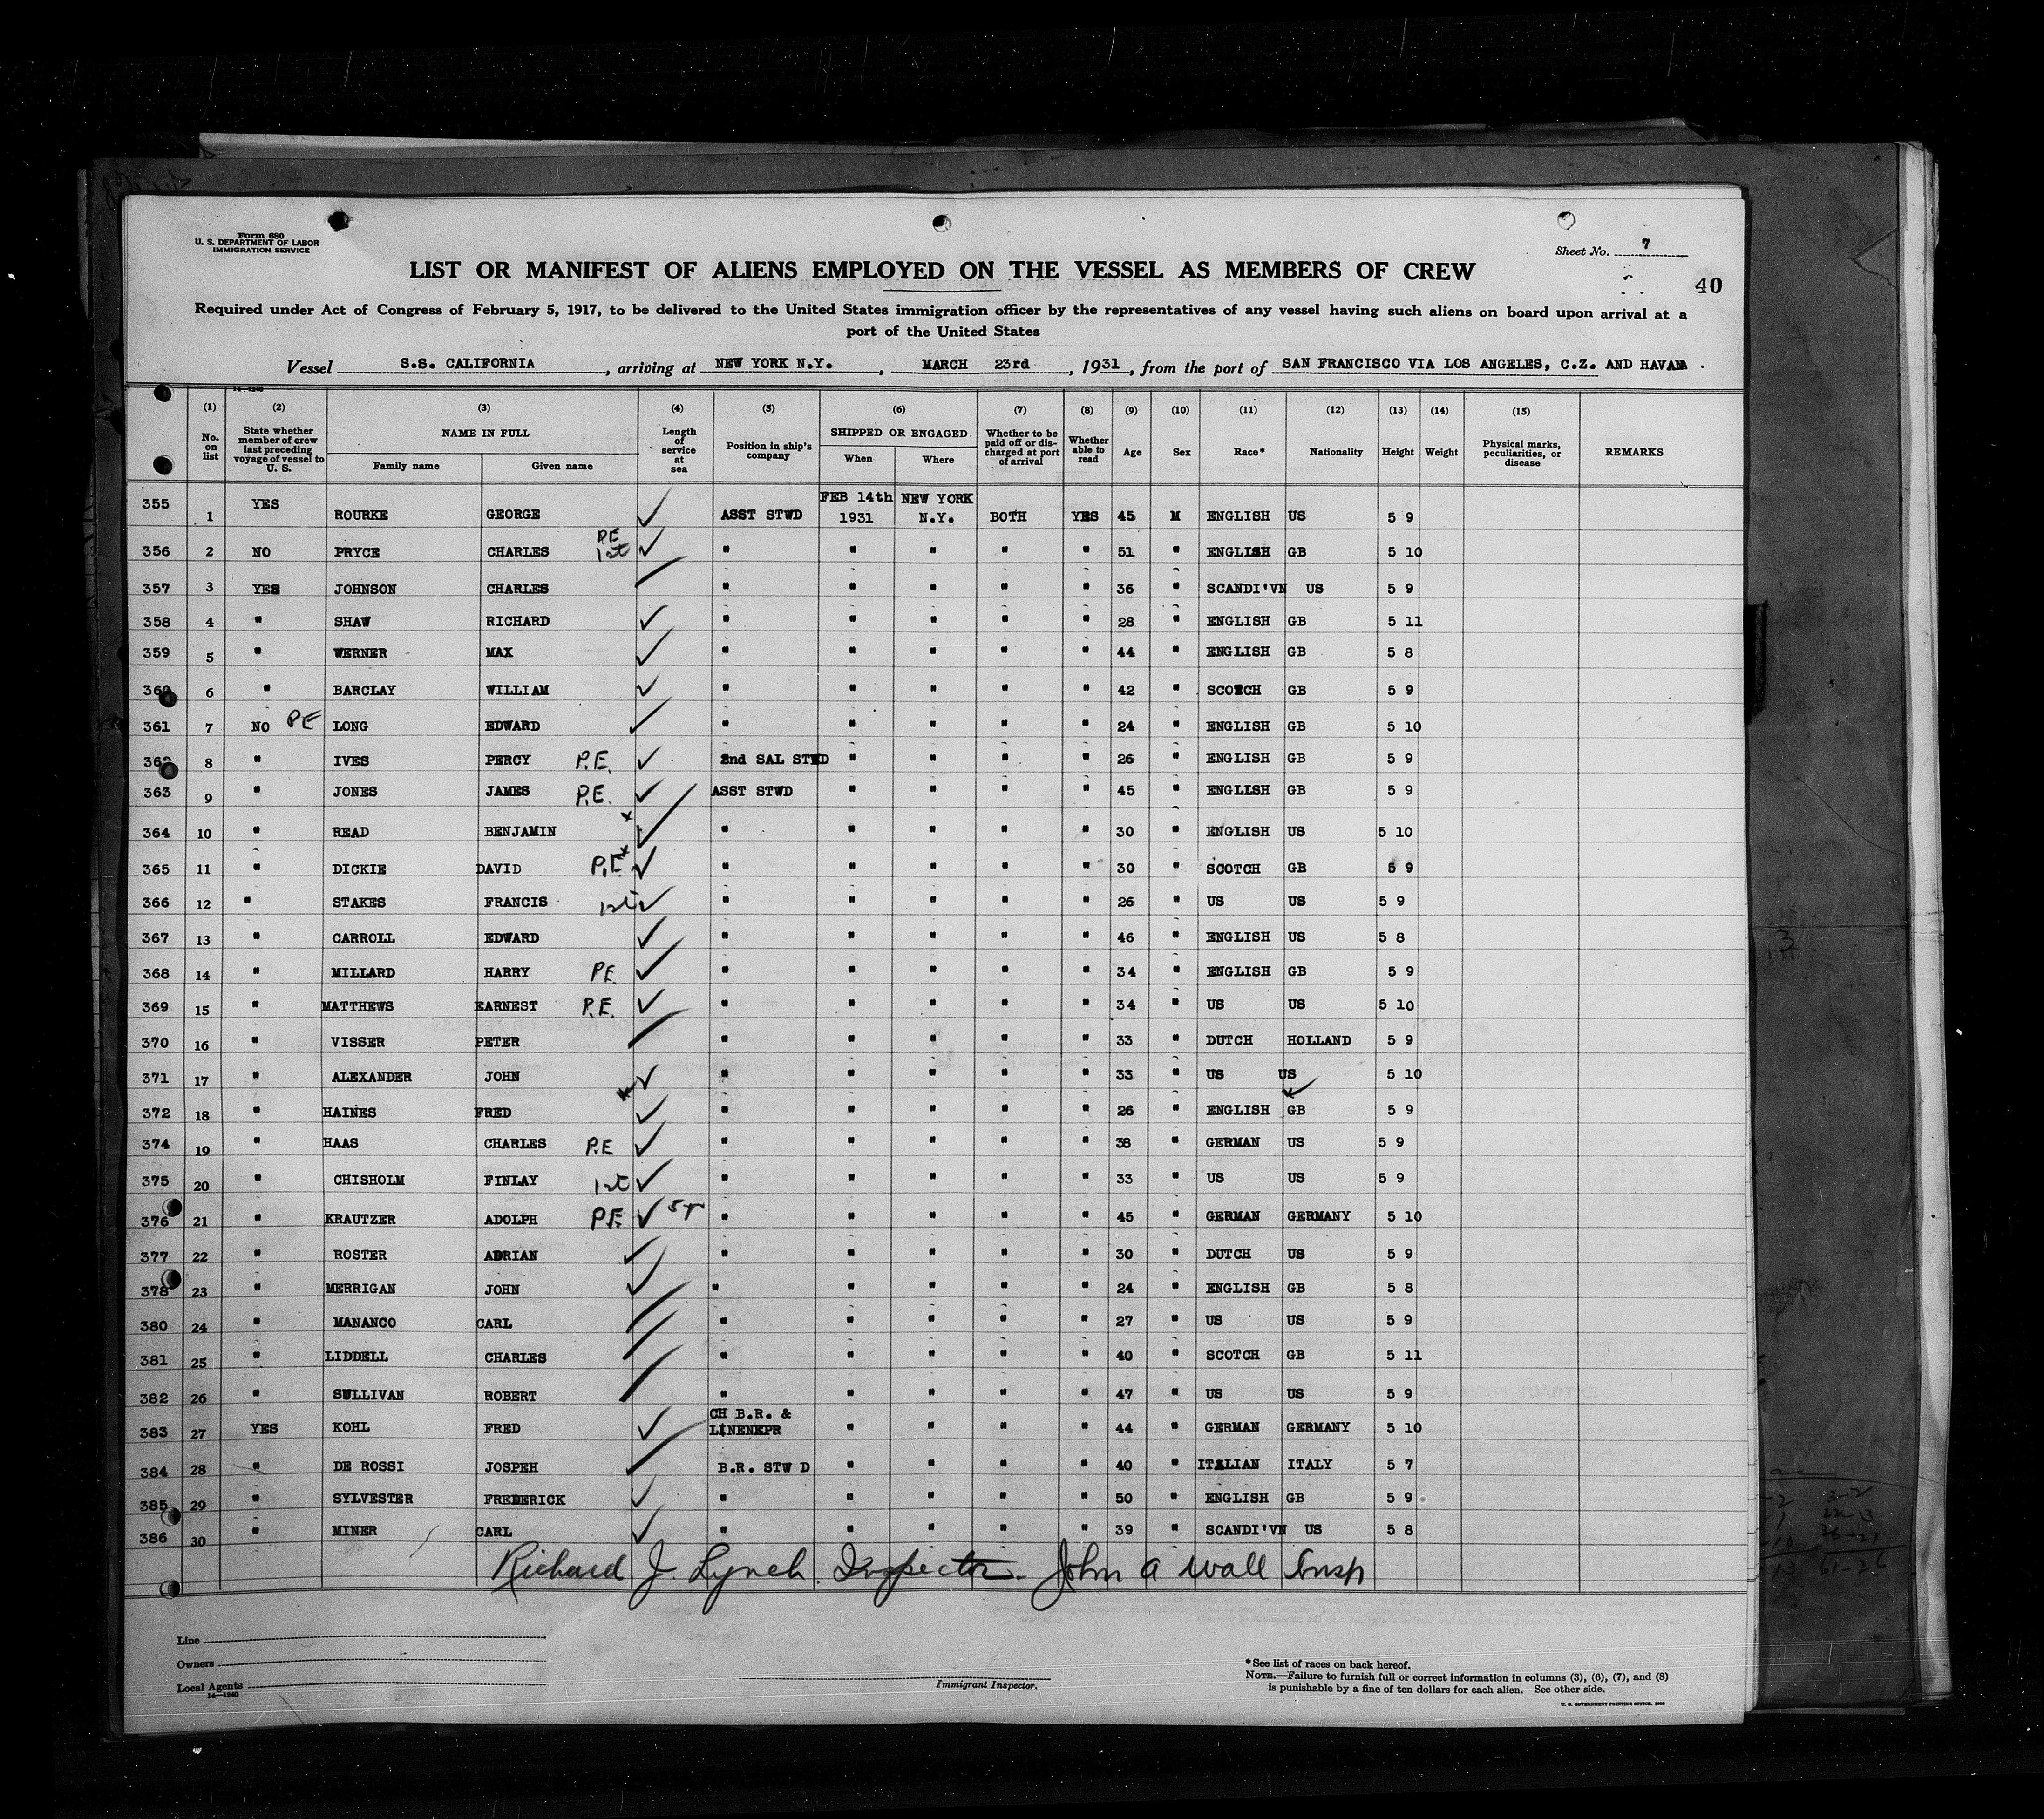 Form 680
U. S. DEPARTMENT OF LABOR
IMMIGRATION SERVICE
Sheet No. 7
40
LIST OR MANIFEST OF ALIENS EMPLOYED ON THE VESSEL AS MEMBERS OF CREW
Required under Act of Congress of February 5, 1917, to be delivered to the United States immigration officer by the representatives of any vessel having such aliens on board upon arrival at a
port of the United States
Vessel S.S. CALIFORNIA, arriving at NEW YORK N.Y., MARCH 23rd, 1931, from the port of SAN FRANCISCO VIA LOS ANGELES, C.Z. AND HAVANA.
14—1240
(1) (2) (3) (4) (5) (6) (7) (8) (9) (10) (11) (12) (13) (14) (15)
No. on list State whether member of crew last preceding voyage of vessel to U. S. NAME IN FULL Family name Given name Length of service at sea Position in ship's company SHIPPED OR ENGAGED When Where Whether to be paid off or discharged at port of arrival Whether able to read Age Sex Race* Nationality Height Weight Physical marks, peculiarities, or disease REMARKS
355 1 YES ROURKE GEORGE ✓ ASST STWD FEB 14th 1931 NEW YORK N.Y. BOTH YES 45 M ENGLISH US 5 9
356 2 NO PRYCE CHARLES P.E. 1st ✓ " " " " " 51 " ENGLISH GB 5 10
357 3 YES JOHNSON CHARLES " " " " " 36 " SCANDI'VN US 5 9
358 4 " SHAW RICHARD ✓ " " " " " 28 " ENGLISH GB 5 11
359 5 " WERNER MAX ✓ " " " " " 44 " ENGLISH GB 5 8
360 6 " BARCLAY WILLIAM ✓ " " " " " 42 " SCOTCH GB 5 9
361 7 NO PE LONG EDWARD ✓ " " " " " 24 " ENGLISH GB 5 10
362 8 " IVES PERCY P.E. ✓ 2nd SAL STWD " " " " 26 " ENGLISH GB 5 9
363 9 " JONES JAMES P.E. ✓ ASST STWD " " " " 45 " ENGLISH GB 5 9
364 10 " READ BENJAMIN x ✓ " " " " " 30 " ENGLISH US 5 10
365 11 " DICKIE DAVID P.E. x ✓ " " " " " 30 " SCOTCH GB 5 9
366 12 " STAKES FRANCIS 1st ✓ " " " " " 26 " US US 5 9
367 13 " CARROLL EDWARD ✓ " " " " " 46 " ENGLISH US 5 8
368 14 " MILLARD HARRY P.E. ✓ " " " " " 34 " ENGLISH GB 5 9
369 15 " MATTHEWS EARNEST P.E. ✓ " " " " " 34 " US US 5 10
370 16 " VISSER PETER " " " " " 33 " DUTCH HOLLAND 5 9
371 17 " ALEXANDER JOHN ✓ " " " " " 33 " US US 5 10
372 18 " HAINES FRED x ✓ " " " " " 26 " ENGLISH ✓ GB 5 9
374 19 " HAAS CHARLES P.E ✓ " " " " " 38 " GERMAN US 5 9
375 20 " CHISHOLM FINLAY 1st ✓ " " " " " 33 " US US 5 9
376 21 " KRAUTZER ADOLPH P.E. ✓ " " " " " 45 " GERMAN GERMANY 5 10
377 22 " ROSTER ADRIAN ✓ " " " " " 30 " DUTCH US 5 9
378 23 " MERRIGAN JOHN ✓ " " " " " 24 " ENGLISH GB 5 8
380 24 " MANANCO CARL " " " " " 27 " US US 5 9
381 25 " LIDDELL CHARLES " " " " " 40 " SCOTCH GB 5 11
382 26 " SULLIVAN ROBERT " " " " " 47 " US US 5 9
383 27 YES KOHL FRED ✓ CH B.R. & LINENEPR " " " " 44 " GERMAN GERMANY 5 10
384 28 " DE ROSSI JOSPEH ✓ B.R. STW D " " " " 40 " ITALIAN ITALY 5 7
385 29 " SYLVESTER FREDERICK ✓ " " " " " 50 " ENGLISH GB 5 9
386 30 " MINER CARL ✓ " " " " " 39 " SCANDI'VN US 5 8
Richard J. Lynch. Inspector. John A Wall Insp
Line
Owners
Local Agents
14—1240
Immigrant Inspector.
*See list of races on back hereof.
NOTE.—Failure to furnish full or correct information in columns (3), (6), (7), and (8)
is punishable by a fine of ten dollars for each alien. See other side.